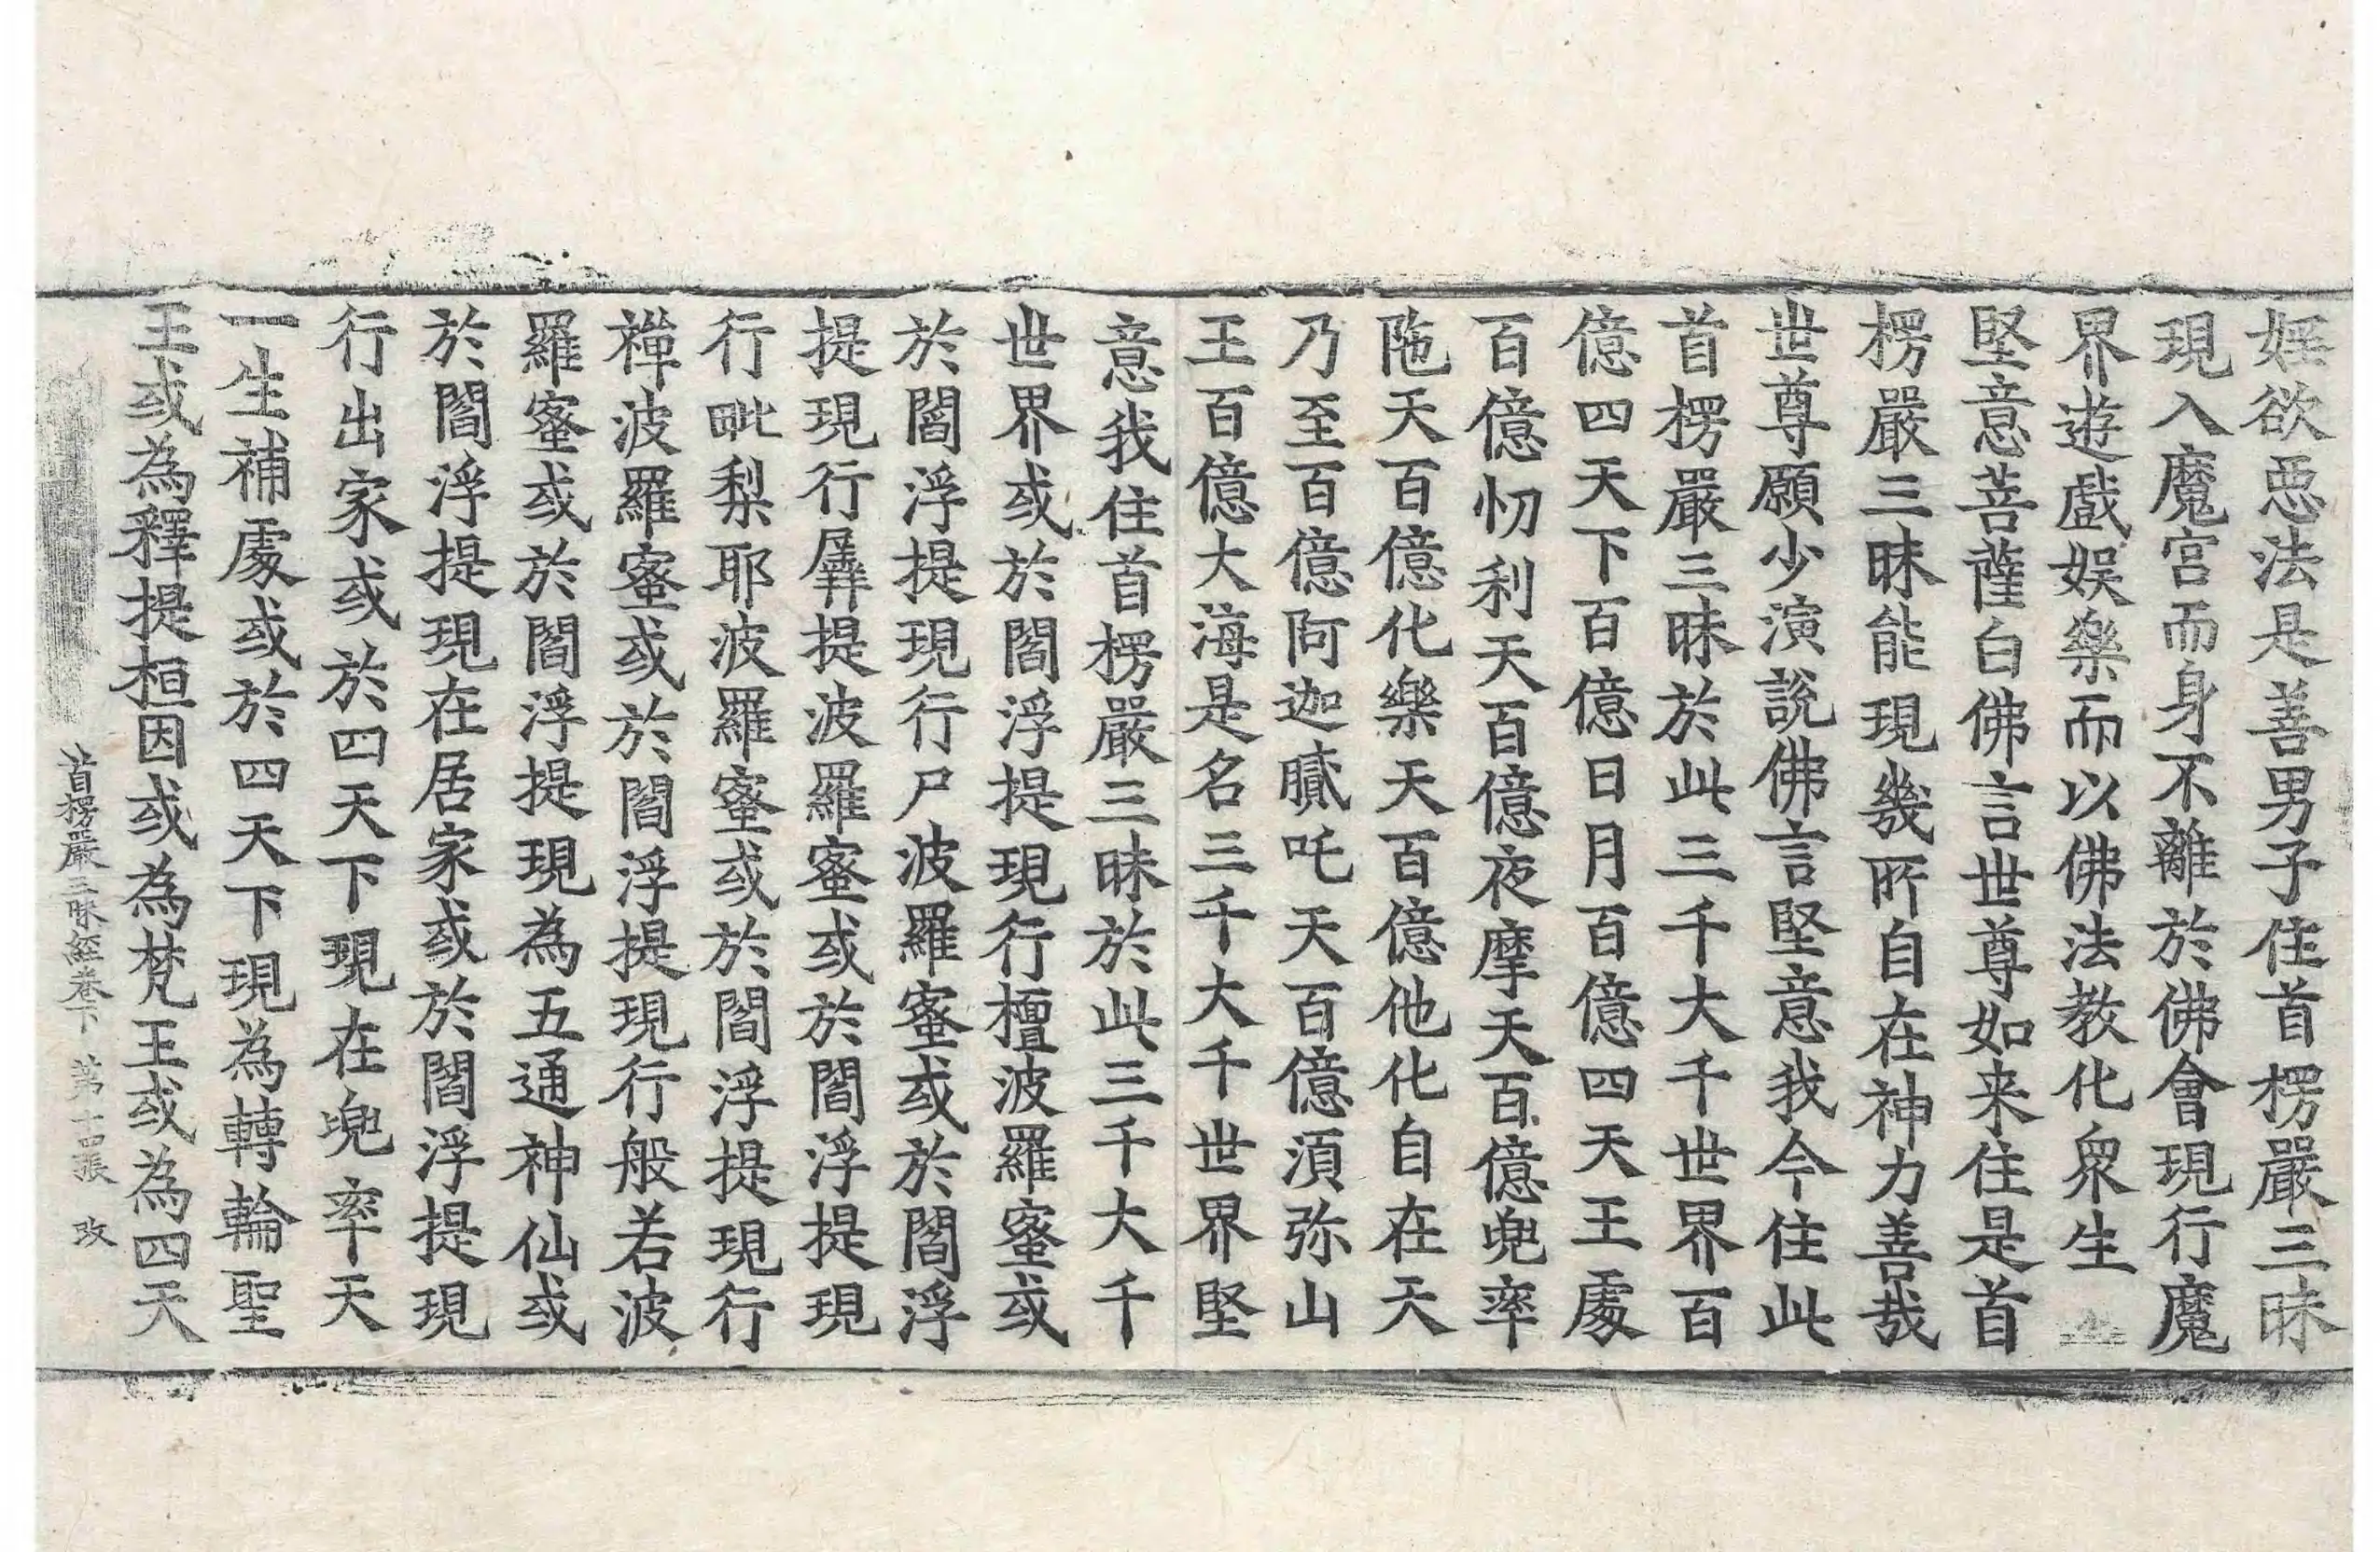 婬欲惡法是善男子住首楞嚴三昧
現入魔宮而身不離於佛會現行魔
界遊戲娛樂而以佛法教化衆生
堅意菩薩白佛言世尊如来住是首
楞嚴三昧能現幾所自在神力善哉
世尊願少演說佛言堅意我今住此
首楞嚴三昧於此三千大千世界百
億四天下百億日月百億四天王處
百億忉利天百億夜摩天百億兜率
陁天百億化樂天百億他化自在天
乃至百億阿迦膩吒天百億須弥山
王百億大海是名三千大千世界堅
意我住首楞嚴三昧於此三千大千
世界或於閻浮提現行檀波羅蜜或
於閻浮提現行尸波羅蜜或於閻浮
提現行羼提波羅蜜或於閻浮提現
行毗梨耶波羅蜜或於閻浮提現行
禪波羅蜜或於閻浮提現行般若波
羅蜜或於閻浮提現為五通神仙或
於閻浮提現在居家或於閻浮提現
行出家或於四天下現在兜率天
一生補處或於四天下現為轉輪聖
王或為釋提桓因或為梵王或為四天
首楞嚴三昧經卷下 第十四張 改